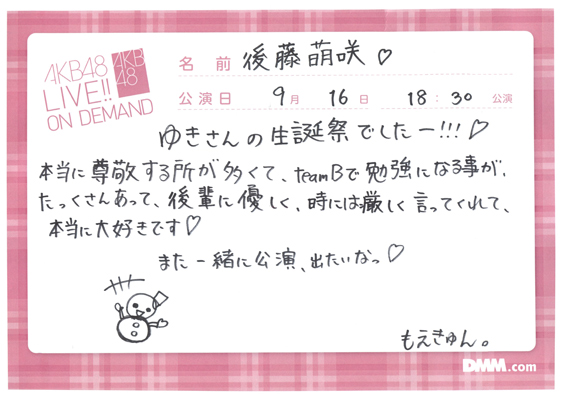 AKB48
LIVE!!
ON DEMAND
AKB
48
名 前 後藤 萌咲 ♡
公演日 9月 16日 18:30 公演
ゆきさんの生誕祭でしたー!!!♡
本当に尊敬する所が多くて、teamBで勉強になる事が、
たっくさんあって、後輩に優しく、時には厳しく言ってくれて、
本当に大好きです♡
また一緒に公演、出たいなっ♡
もえきゅん。
DMM.com